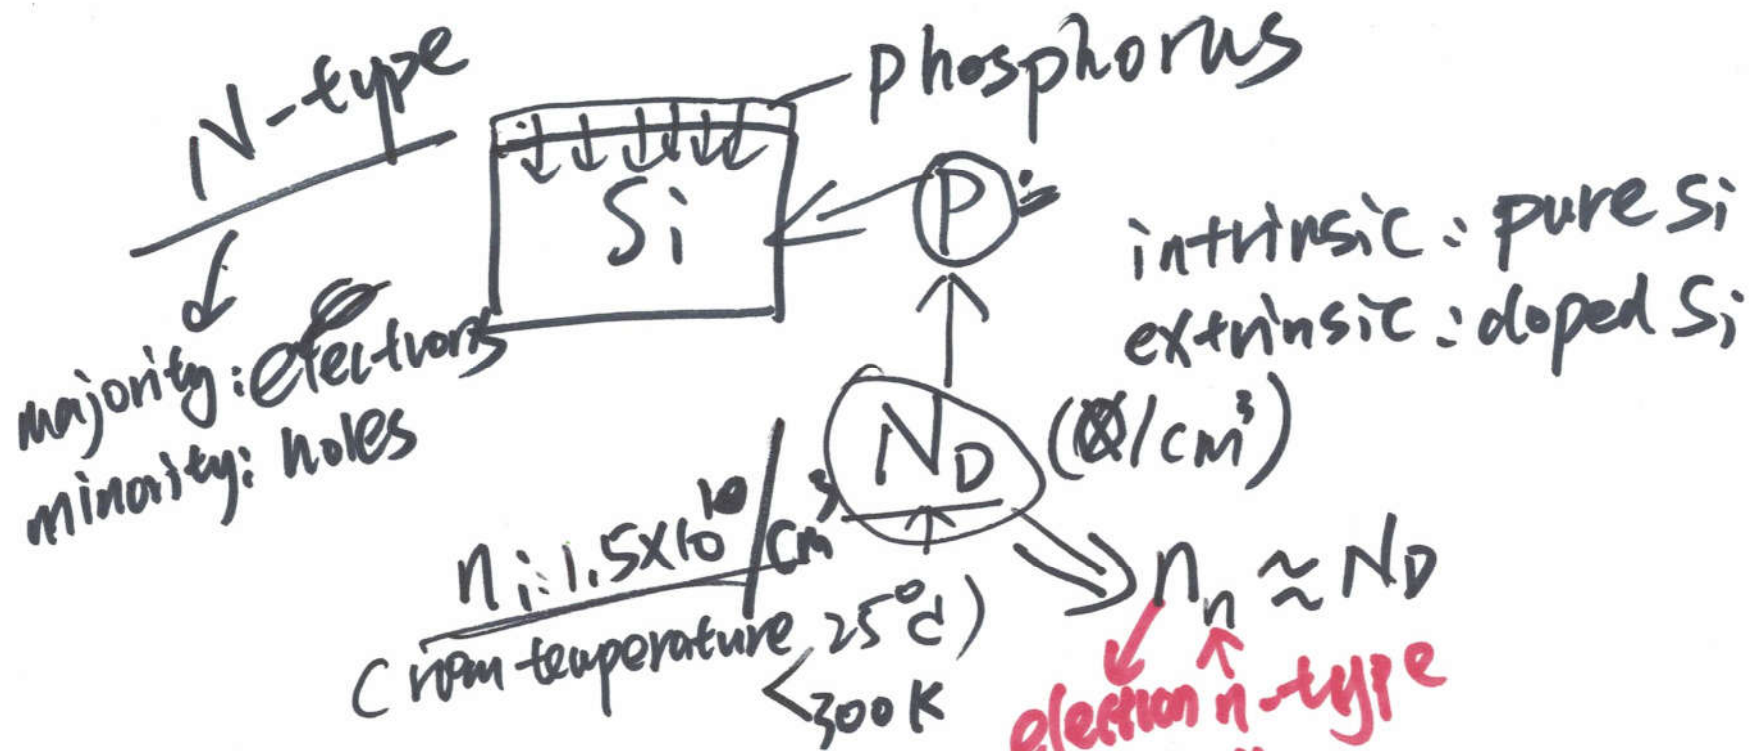 N-type
phosphorus
Si
P
intrinsic: pure Si
extrinsic: doped Si
majority: electrons
minority: holes
N_D (/cm³)
n_i: 1.5×10¹⁰/cm³
(room temperature, 25°C)
<300K
n_n ≈ N_D
electron n-type